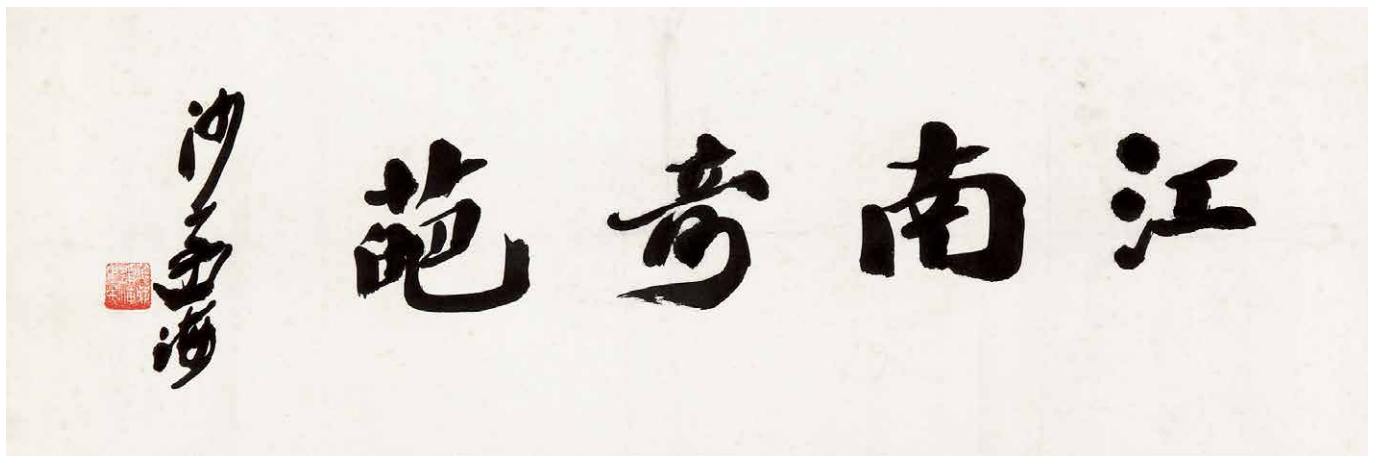 江南奇葩
沙孟海